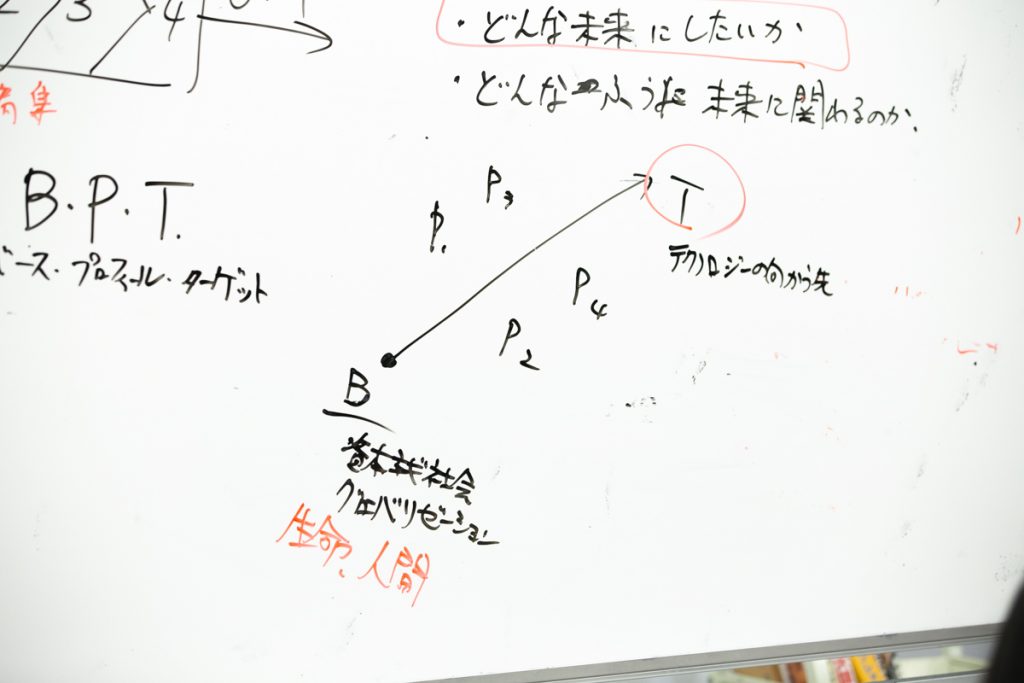 2 3 4
・どんな未来にしたいか
・どんなふうに未来に関わるのか.
集
B.P.T.
ベース・プロフィール・ターゲット
P3
P1
T
テクノロジーの向かう先
P4
P2
B
資本主義社会
グローバリゼーション
生命、人間